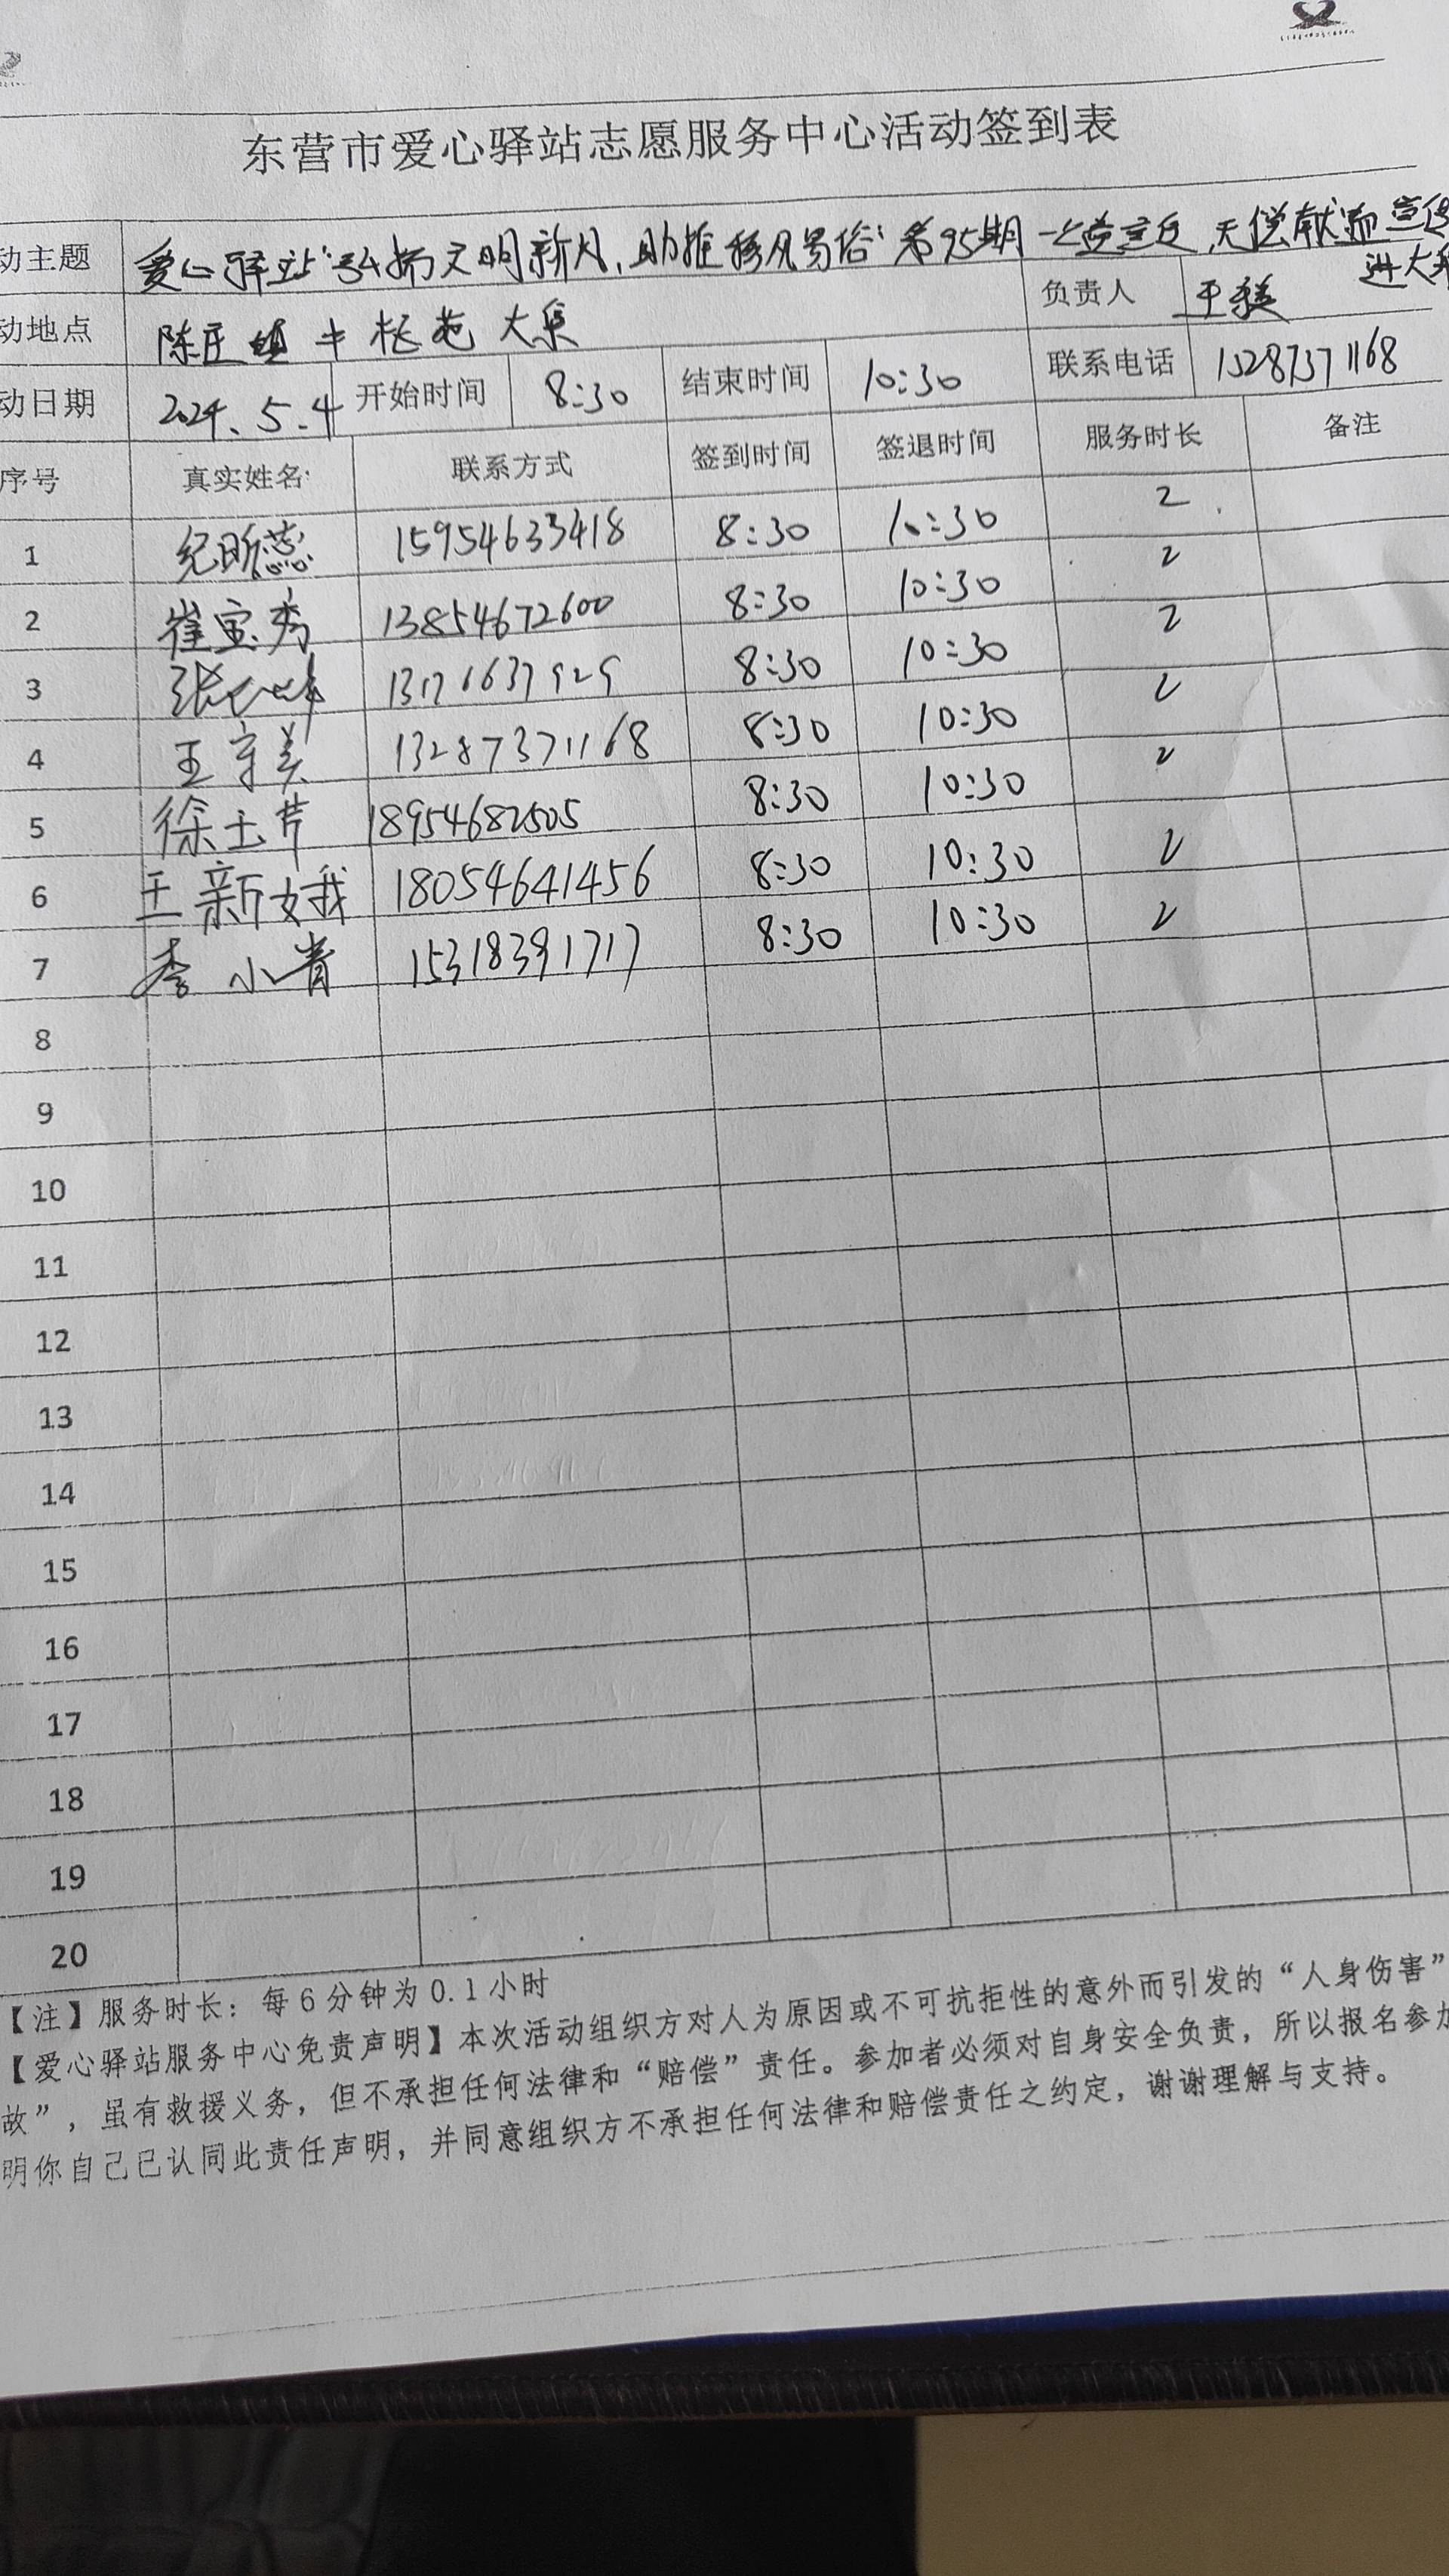 东营市爱心驿站志愿服务中心活动签到表
动主题 爱心驿站"弘扬文明新风,助推移风易俗"第95期 无偿献血宣传
进大集
动地点 陈庄镇 大集 负责人 王
动日期 2024.5.4 开始时间 8:30 结束时间 10:30 联系电话 13287371168
序号 真实姓名 联系方式 签到时间 签退时间 服务时长 备注
1 纪昕蕊 15954633418 8:30 10:30 2
2 崔宝秀 13854672600 8:30 10:30 2
3 张 8:30 10:30 2
4 王守美 13287371168 8:30 10:30 2
5 徐玉芹 18954682505 8:30 10:30 2
6 王新娥 18054641456 8:30 10:30 2
7 李小青 15318391717 8:30 10:30 2
8
9
10
11
12
13
14
15
16
17
18
19
20
【注】服务时长:每6分钟为0.1小时
【爱心驿站服务中心免责声明】本次活动组织方对人为原因或不可抗拒性的意外而引发的“人身伤害”
故”,虽有救援义务,但不承担任何法律和“赔偿”责任。参加者必须对自身安全负责,所以报名参加
明你自己已认同此责任声明,并同意组织方不承担任何法律和赔偿责任之约定,谢谢理解与支持。